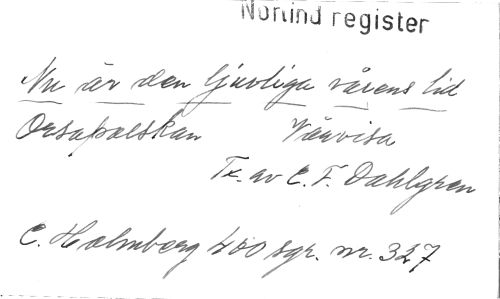 Norlind register
Nu är den ljuvliga vårens tid
Orsapolskan Vårvisa
Tx. av C. F. Dahlgren
C. Holmberg 400 sgr. nr. 327